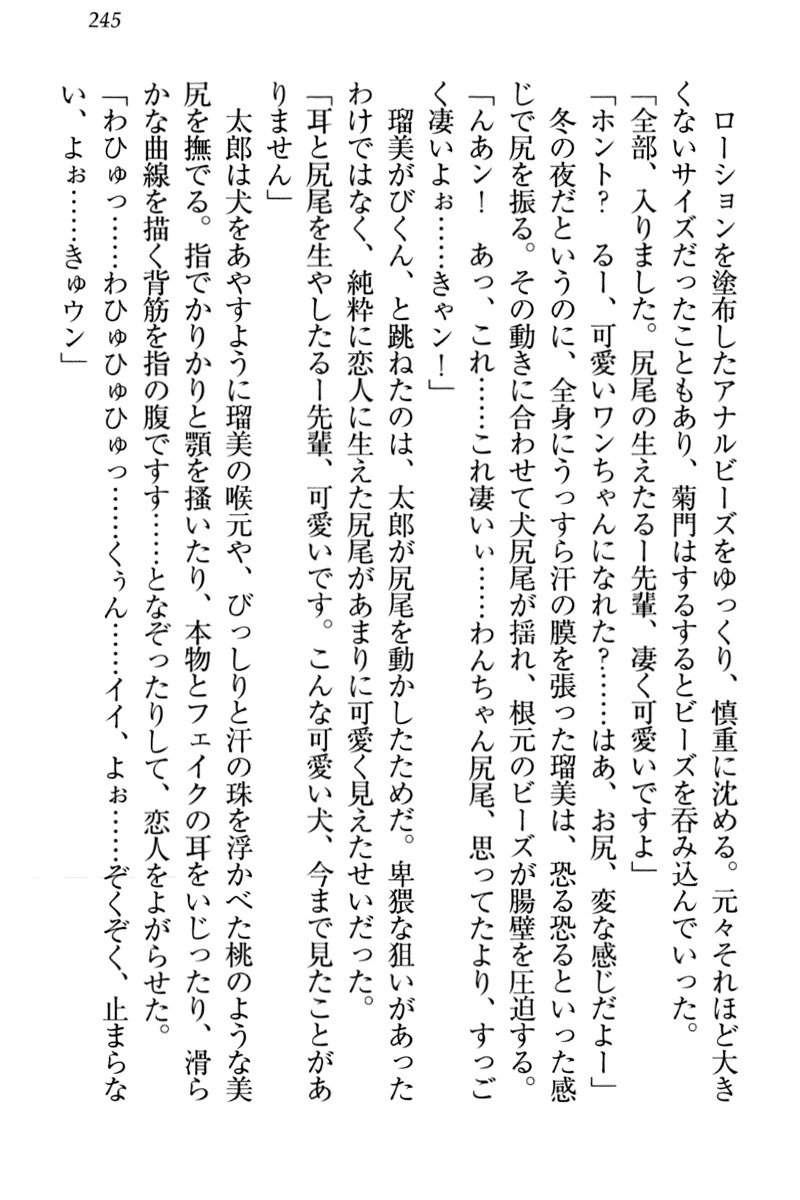 245
ローションを塗布したアナルビーズをゆっくり、慎重に沈める。元々それほど大き
くないサイズだったこともあり、菊門はするするとビーズを呑み込んでいった。
「全部、入りました。尻尾の生えたるー先輩、凄く可愛いですよ」
「ホント?　るー、可愛いワンちゃんになれた?……はあ、お尻、変な感じだよー」
冬の夜だというのに、全身にうっすら汗の膜を張った瑠美は、恐る恐るといった感
じで尻を振る。その動きに合わせて犬尻尾が揺れ、根元のビーズが腸壁を圧迫する。
「んあン!　あっ、これ……これ凄いぃ……わんちゃん尻尾、思ってたより、すっご
く凄いよぉ……きゃン!」
瑠美がびくん、と跳ねたのは、太郎が尻尾を動かしたためだ。卑猥な狙いがあった
わけではなく、純粋に恋人に生えた尻尾があまりに可愛く見えたせいだった。
「耳と尻尾を生やしたるー先輩、可愛いです。こんな可愛い犬、今まで見たことがあ
りません」
太郎は犬をあやすように瑠美の喉元や、びっしりと汗の珠を浮かべた桃のような美
尻を撫でる。指でかりかりと顎を掻いたり、本物とフェイクの耳をいじったり、滑ら
かな曲線を描く背筋を指の腹ですす……となぞったりして、恋人をよがらせた。
「わひゅっ……わひゅひゅひゅっ……くぅん……イイ、よぉ……ぞくぞく、止まらな
い、よぉ……きゅウン」